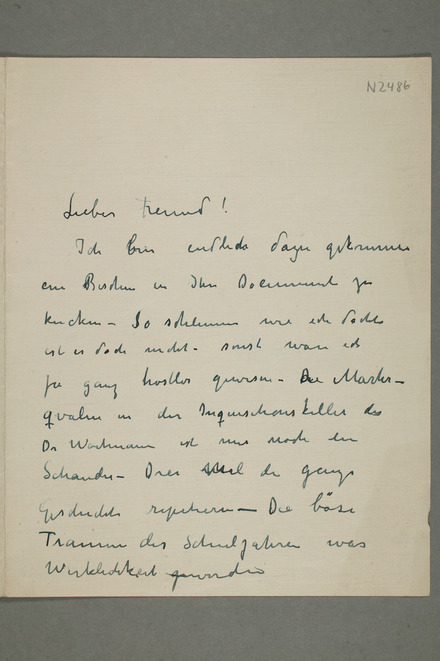 N2486
Lieber Freund!
Ich bin endlich dazu gekommen
ein Bischen in Ihr Document zu
kucken – So schlimm wie ich dachte
ist es doch nicht – sonst wäre ich
ja ganz trostlos gewesen – Die Marter-
qualen in der Inquisitionskeller des
Dr ist nur noch ein
Schande – Drei Mal die ganze
Geschichte repetieren – Die böse
Traum des Schuljahren was
Wirklichkeit geworden